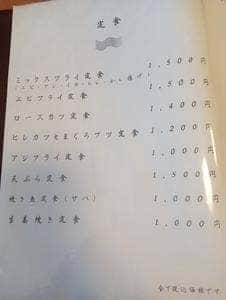 定食
ミックスフライ定食 1,500円
エビフライ定食 1,500円
ロースカツ定食 1,400円
ヒレカツとまぐろブツ定食 1,200円
アジフライ定食 1,000円
天ぷら定食 1,500円
焼き魚定食(サバ) 1,000円
生姜焼き定食 1,000円
全て税込価格です